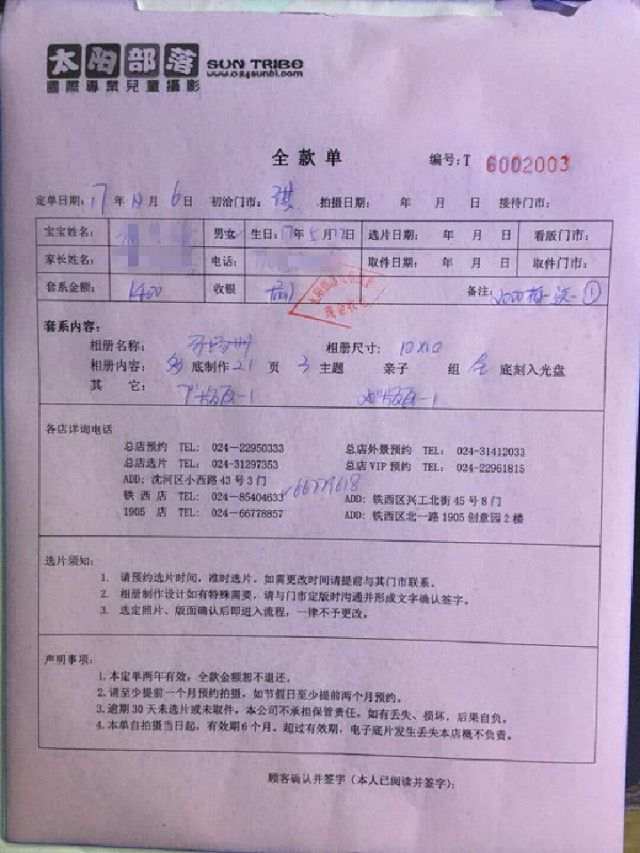 太阳部落 SUN TRIBE
國際專業兒童攝影
全款单 编号: T 6002003
定单日期: 17年 月6日 初洽门市: 拍摄日期: 年 月 日 接待门市:
宝宝姓名: 男女 生日: 17年5月17日 选片日期: 年 月 日 看版门市:
家长姓名: 电话: 取件日期: 年 月 日 取件门市:
套系金额: 1400 收银 备注:
套系内容:
相册名称: 相册尺寸: 10x10
相册内容: 底制作21页 3主题 亲子 组 全底刻入光盘
其 它:
各店详询电话
总店预约 TEL: 024-22950333 总店外景预约 TEL: 024-31412033
总店选片 TEL: 024-31297353 总店VIP预约 TEL: 024-22961815
ADD: 沈河区小西路43号3门
铁西店 TEL: 024-85404633 ADD: 铁西区兴工北街45号8门
1905店 TEL: 024-66778857 ADD: 铁西区北一路1905创意园2楼
选片须知:
1. 请预约选片时间，准时选片，如需更改时间请提前与其门市联系。
2. 相册制作设计如有特殊需要，请与门市定版时沟通并形成文字确认签字。
3. 选定照片、版面确认后即进入流程，一律不予更改。
声明事项:
1.本定单两年有效，全款金额恕不退还。
2.请至少提前一个月预约拍摄，如节假日至少提前两个月预约。
3.逾期30天未选片或未取件，本公司不承担保管责任，如有丢失、损坏，后果自负。
4.本单自拍摄当日起，有效期6个月。超过有效期，电子底片发生丢失本店概不负责。
顾客确认并签字（本人已阅读并签字）: